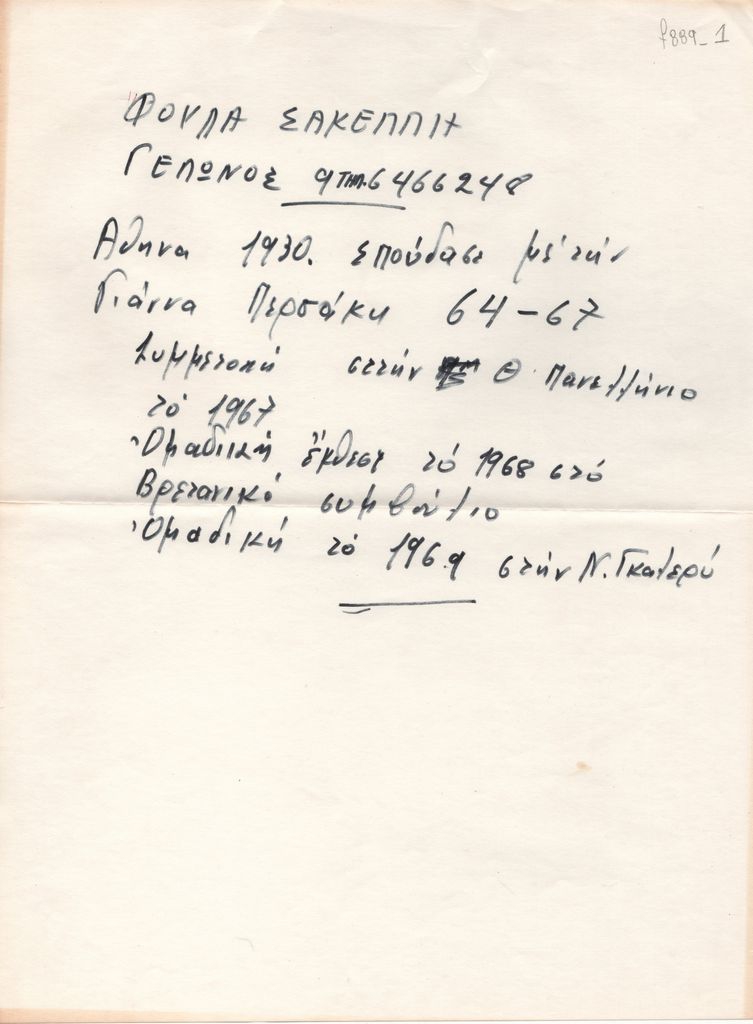 f889_1
ΦΟΥΛΑ ΣΑΚΕΛΛΗ
ΓΕΛΩΝΟΣ 9 ΤΗΛ. 6466248
Αθηνα 1930. Σπούδασε μέ τήν
Γιάννα Περσάκη 64-67
Συμμετοχή στήν Θ Πανελλήνιο
τό 1967
Ὁμαδική ἔκθεση τό 1968 στό
Βρετανικό συμβούλιο
Ὁμαδική τό 1969 στήν Ν. Γκαλερύ